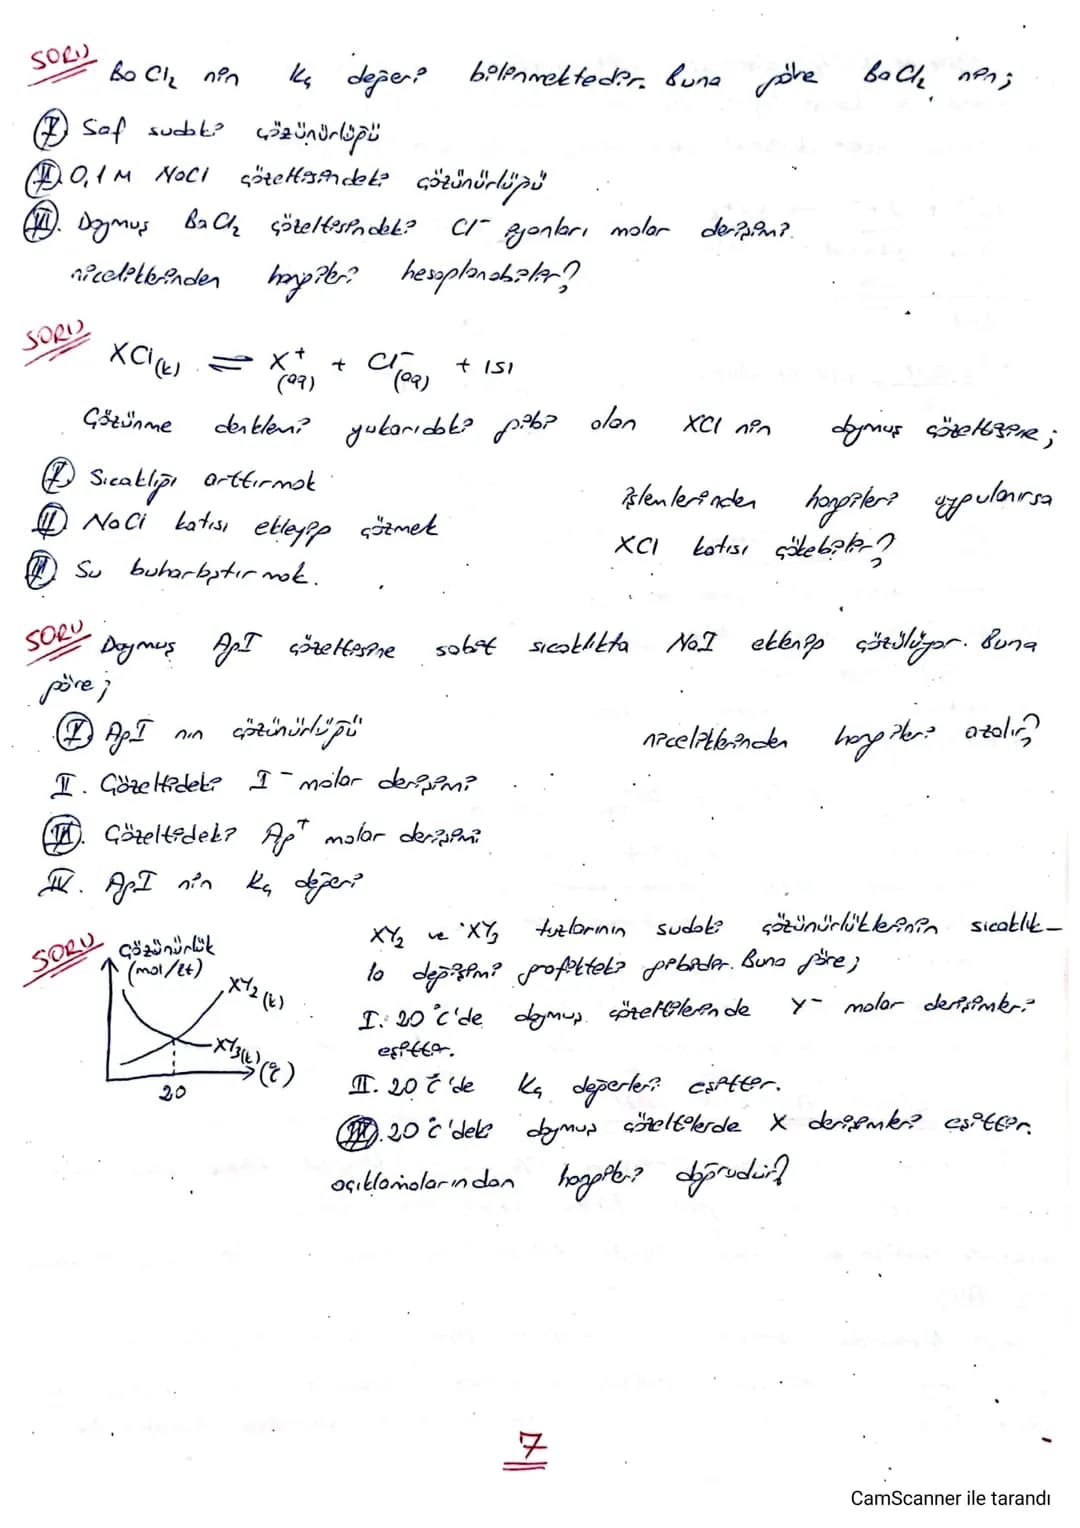 SORU
BaCl₂ nin Kç değeri bilinmektedir. Buna göre BaCl₂ nin;
I Saf sudaki çözünürlüğü
II. 0,1 M NaCl çözeltisindeki çözünürlüğü
III. Doymuş BaCl₂ çözeltisindeki Cl⁻ iyonları molar derişimi.
niceliklerinden hangileri hesaplanabilir?
SORU
XCl(k) ⇌ X⁺(aq) + Cl⁻(aq) + ısı
Çözünme denklemi yukarıdaki gibi olan XCl nin doymuş çözeltisine;
I Sıcaklığı arttırmak
II NaCl katısı ekleyip çözmek
III Su buharlaştırmak.
işlemlerinden hangileri uygulanırsa
XCl katısı çökebilir?
SORU
Doymuş AgI çözeltisine sabit sıcaklıkta NaI eklenip çözülüyor. Buna
göre;
I AgI nın çözünürlüğü
II. Çözeltideki I⁻ molar derişimi
III. Çözeltideki Ag⁺ molar derişimi
IV. AgI nin Kç değeri
niceliklerinden hangileri azalır?
SORU
Çözünürlük
(mol/lt)
XY₂(k)
XY₃(k)
(°C)
20
XY₂ ve XY₃ tuzlarının sudaki çözünürlüklerinin sıcaklık-
la değişimi grafikteki gibidir. Buna göre;
I. 20 °C'de doymuş çözeltilerinde Y⁻ molar derişimleri
eşittir.
II. 20 °C'de Kç değerleri eşittir.
III. 20 °C'deki doymuş çözeltilerde X derişimleri eşittir.
açıklamalarından hangileri doğrudur?
7
CamScanner ile tarandı